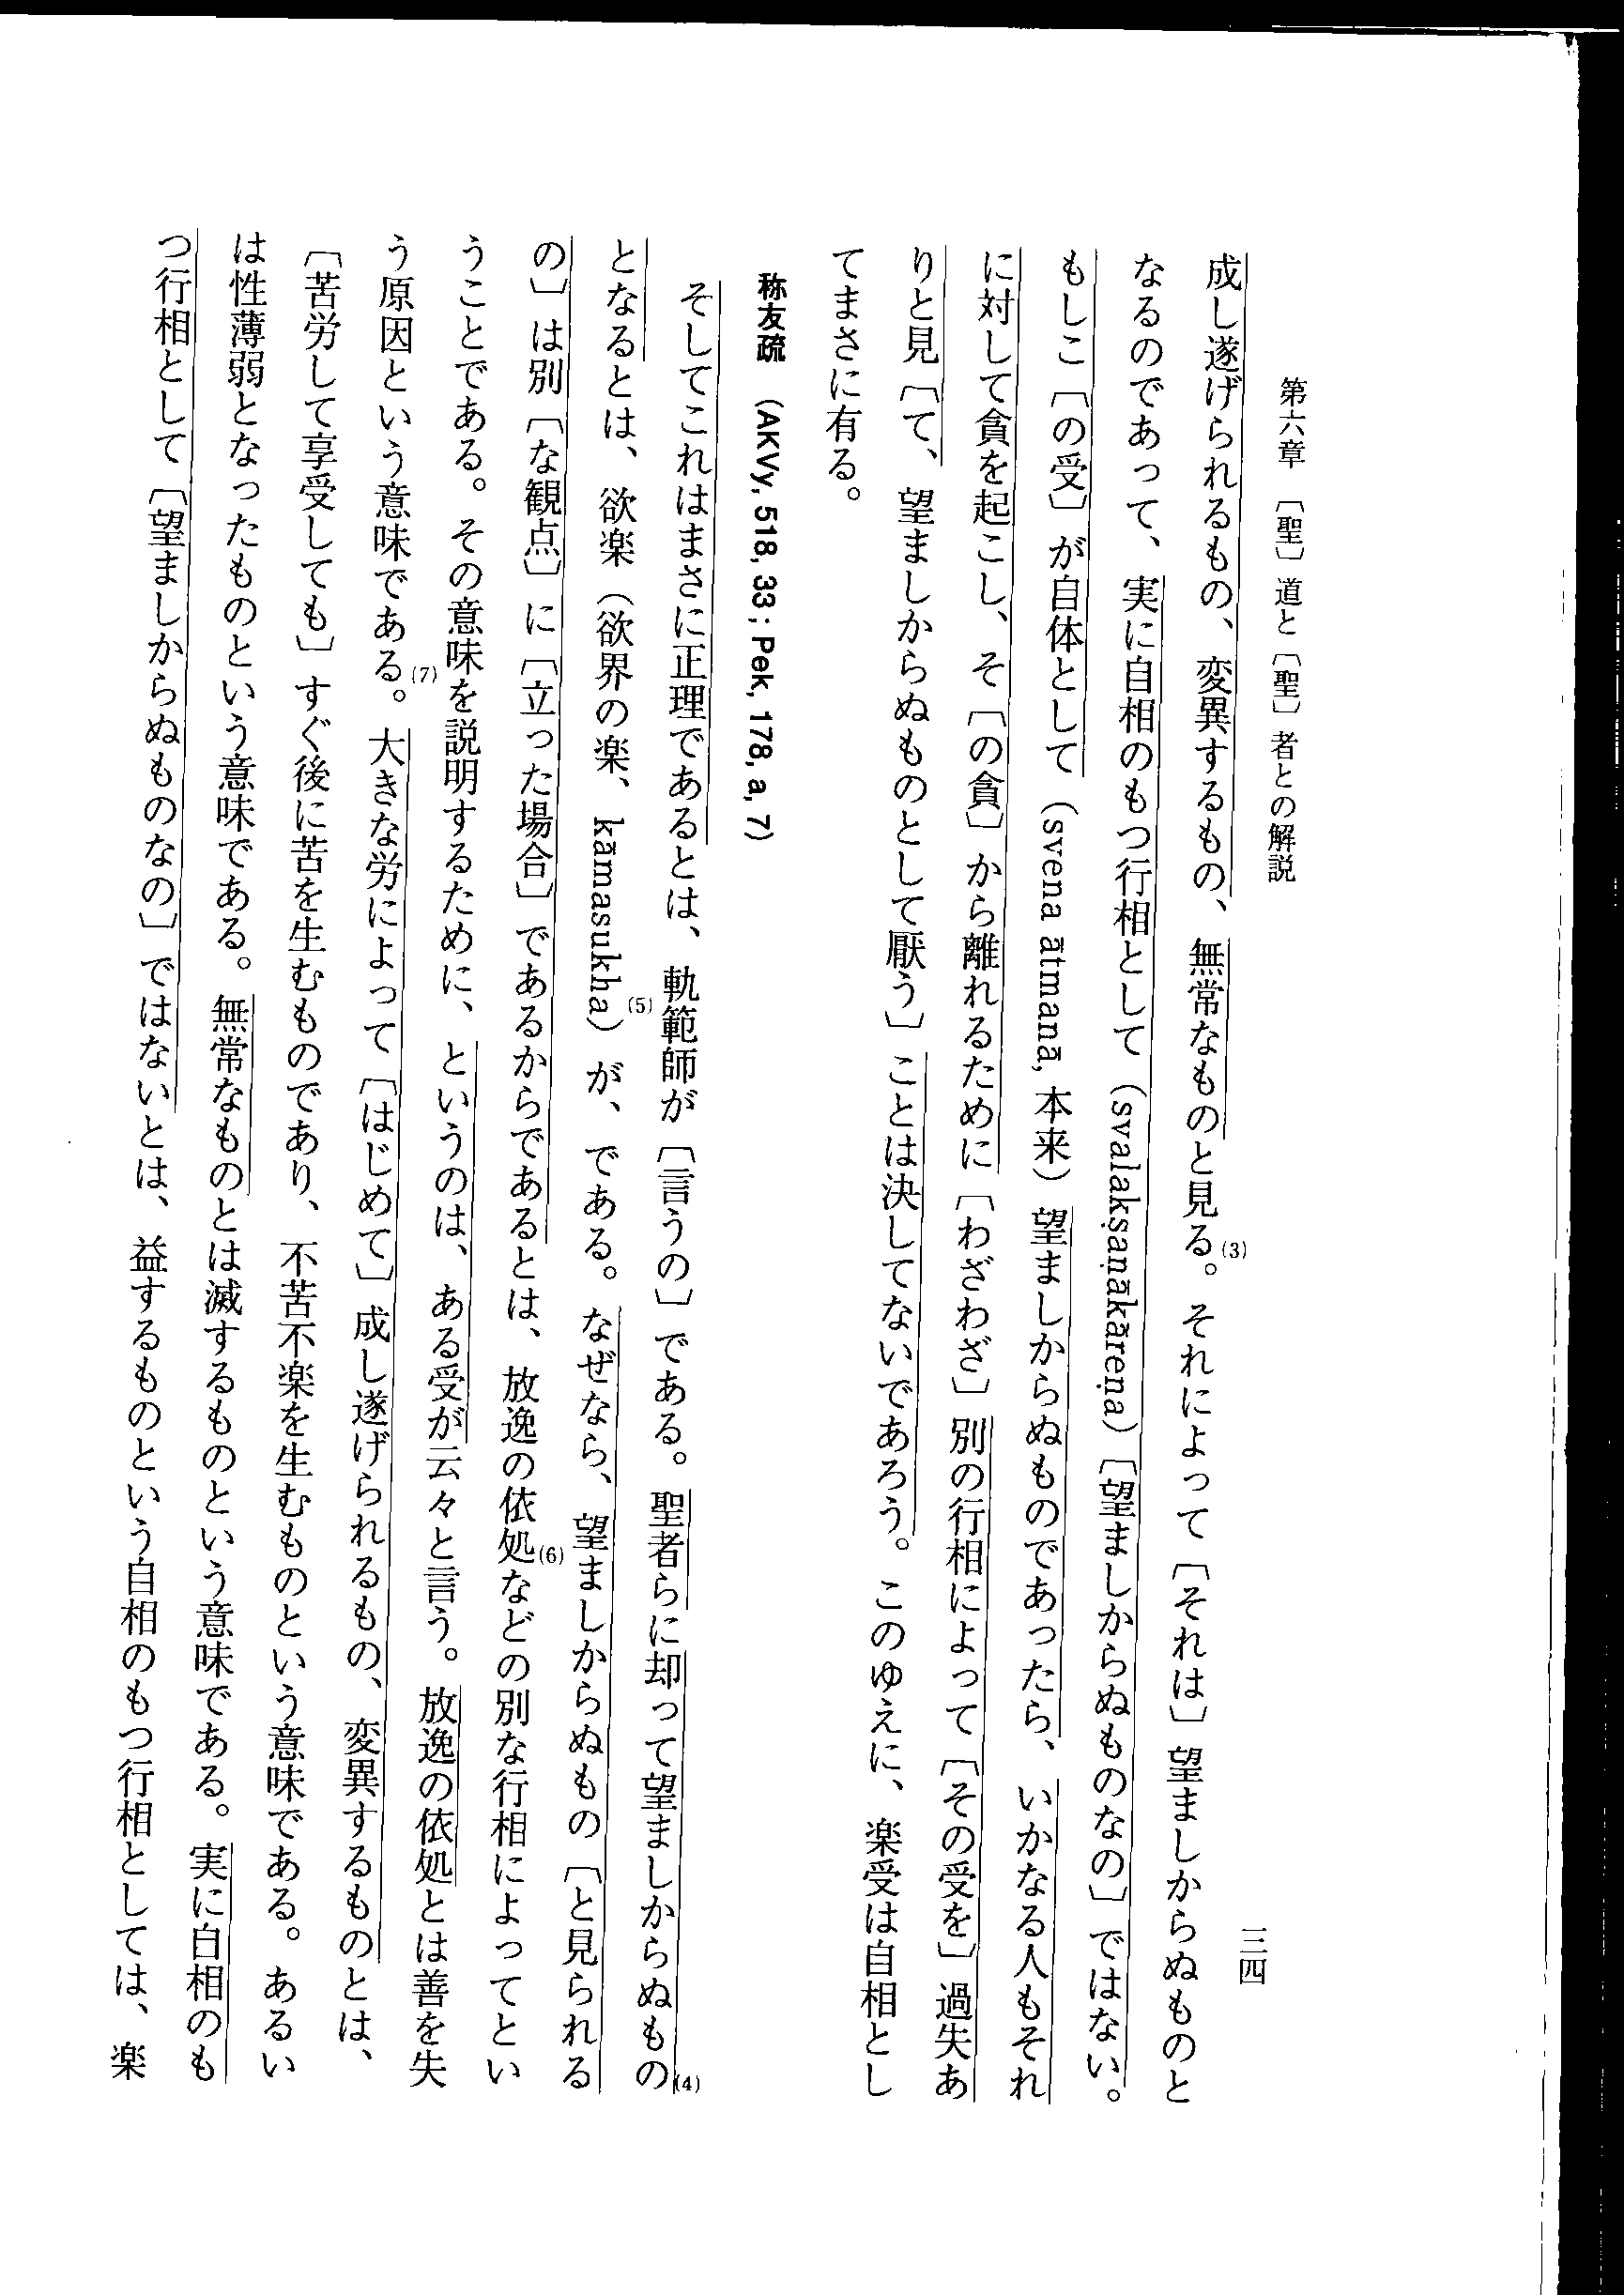 第六章 〔聖〕道と〔聖〕者との解説
三四
成し遂げられるもの、変異するもの、無常なものと見る。(3)それによって〔それは〕望ましからぬものと
なるのであって、実に自相のもつ行相として（svalakṣaṇākāreṇa）〔望ましからぬものなの〕ではない。
もしこ〔の受〕が自体として（svena ātmanā, 本来）望ましからぬものであったら、いかなる人もそれ
に対して貪を起こし、そ〔の貪〕から離れるために〔わざわざ〕別の行相によって〔その受を〕過失あ
りと見〔て、望ましからぬものとして厭う〕ことは決してないであろう。このゆえに、楽受は自相とし
てまさに有る。
称友疏 （AKVy, 518, 33 ; Pek, 178, a, 7）
そしてこれはまさに正理であるとは、軌範師が〔言うの〕である。聖者らに却って望ましからぬもの(4)
となるとは、欲楽（欲界の楽、kāmasukha）(5)が、である。なぜなら、望ましからぬもの〔と見られる
の〕は別〔な観点〕に〔立った場合〕であるからであるとは、放逸の依処(6)などの別な行相によってとい
うことである。その意味を説明するために、というのは、ある受が云々と言う。放逸の依処とは善を失
う原因という意味である。(7)大きな労によって〔はじめて〕成し遂げられるもの、変異するものとは、
〔苦労して享受しても〕すぐ後に苦を生むものであり、不苦不楽を生むものという意味である。あるい
は性薄弱となったものという意味である。無常なものとは滅するものという意味である。実に自相のも
つ行相として〔望ましからぬものなの〕ではないとは、益するものという自相のもつ行相としては、楽